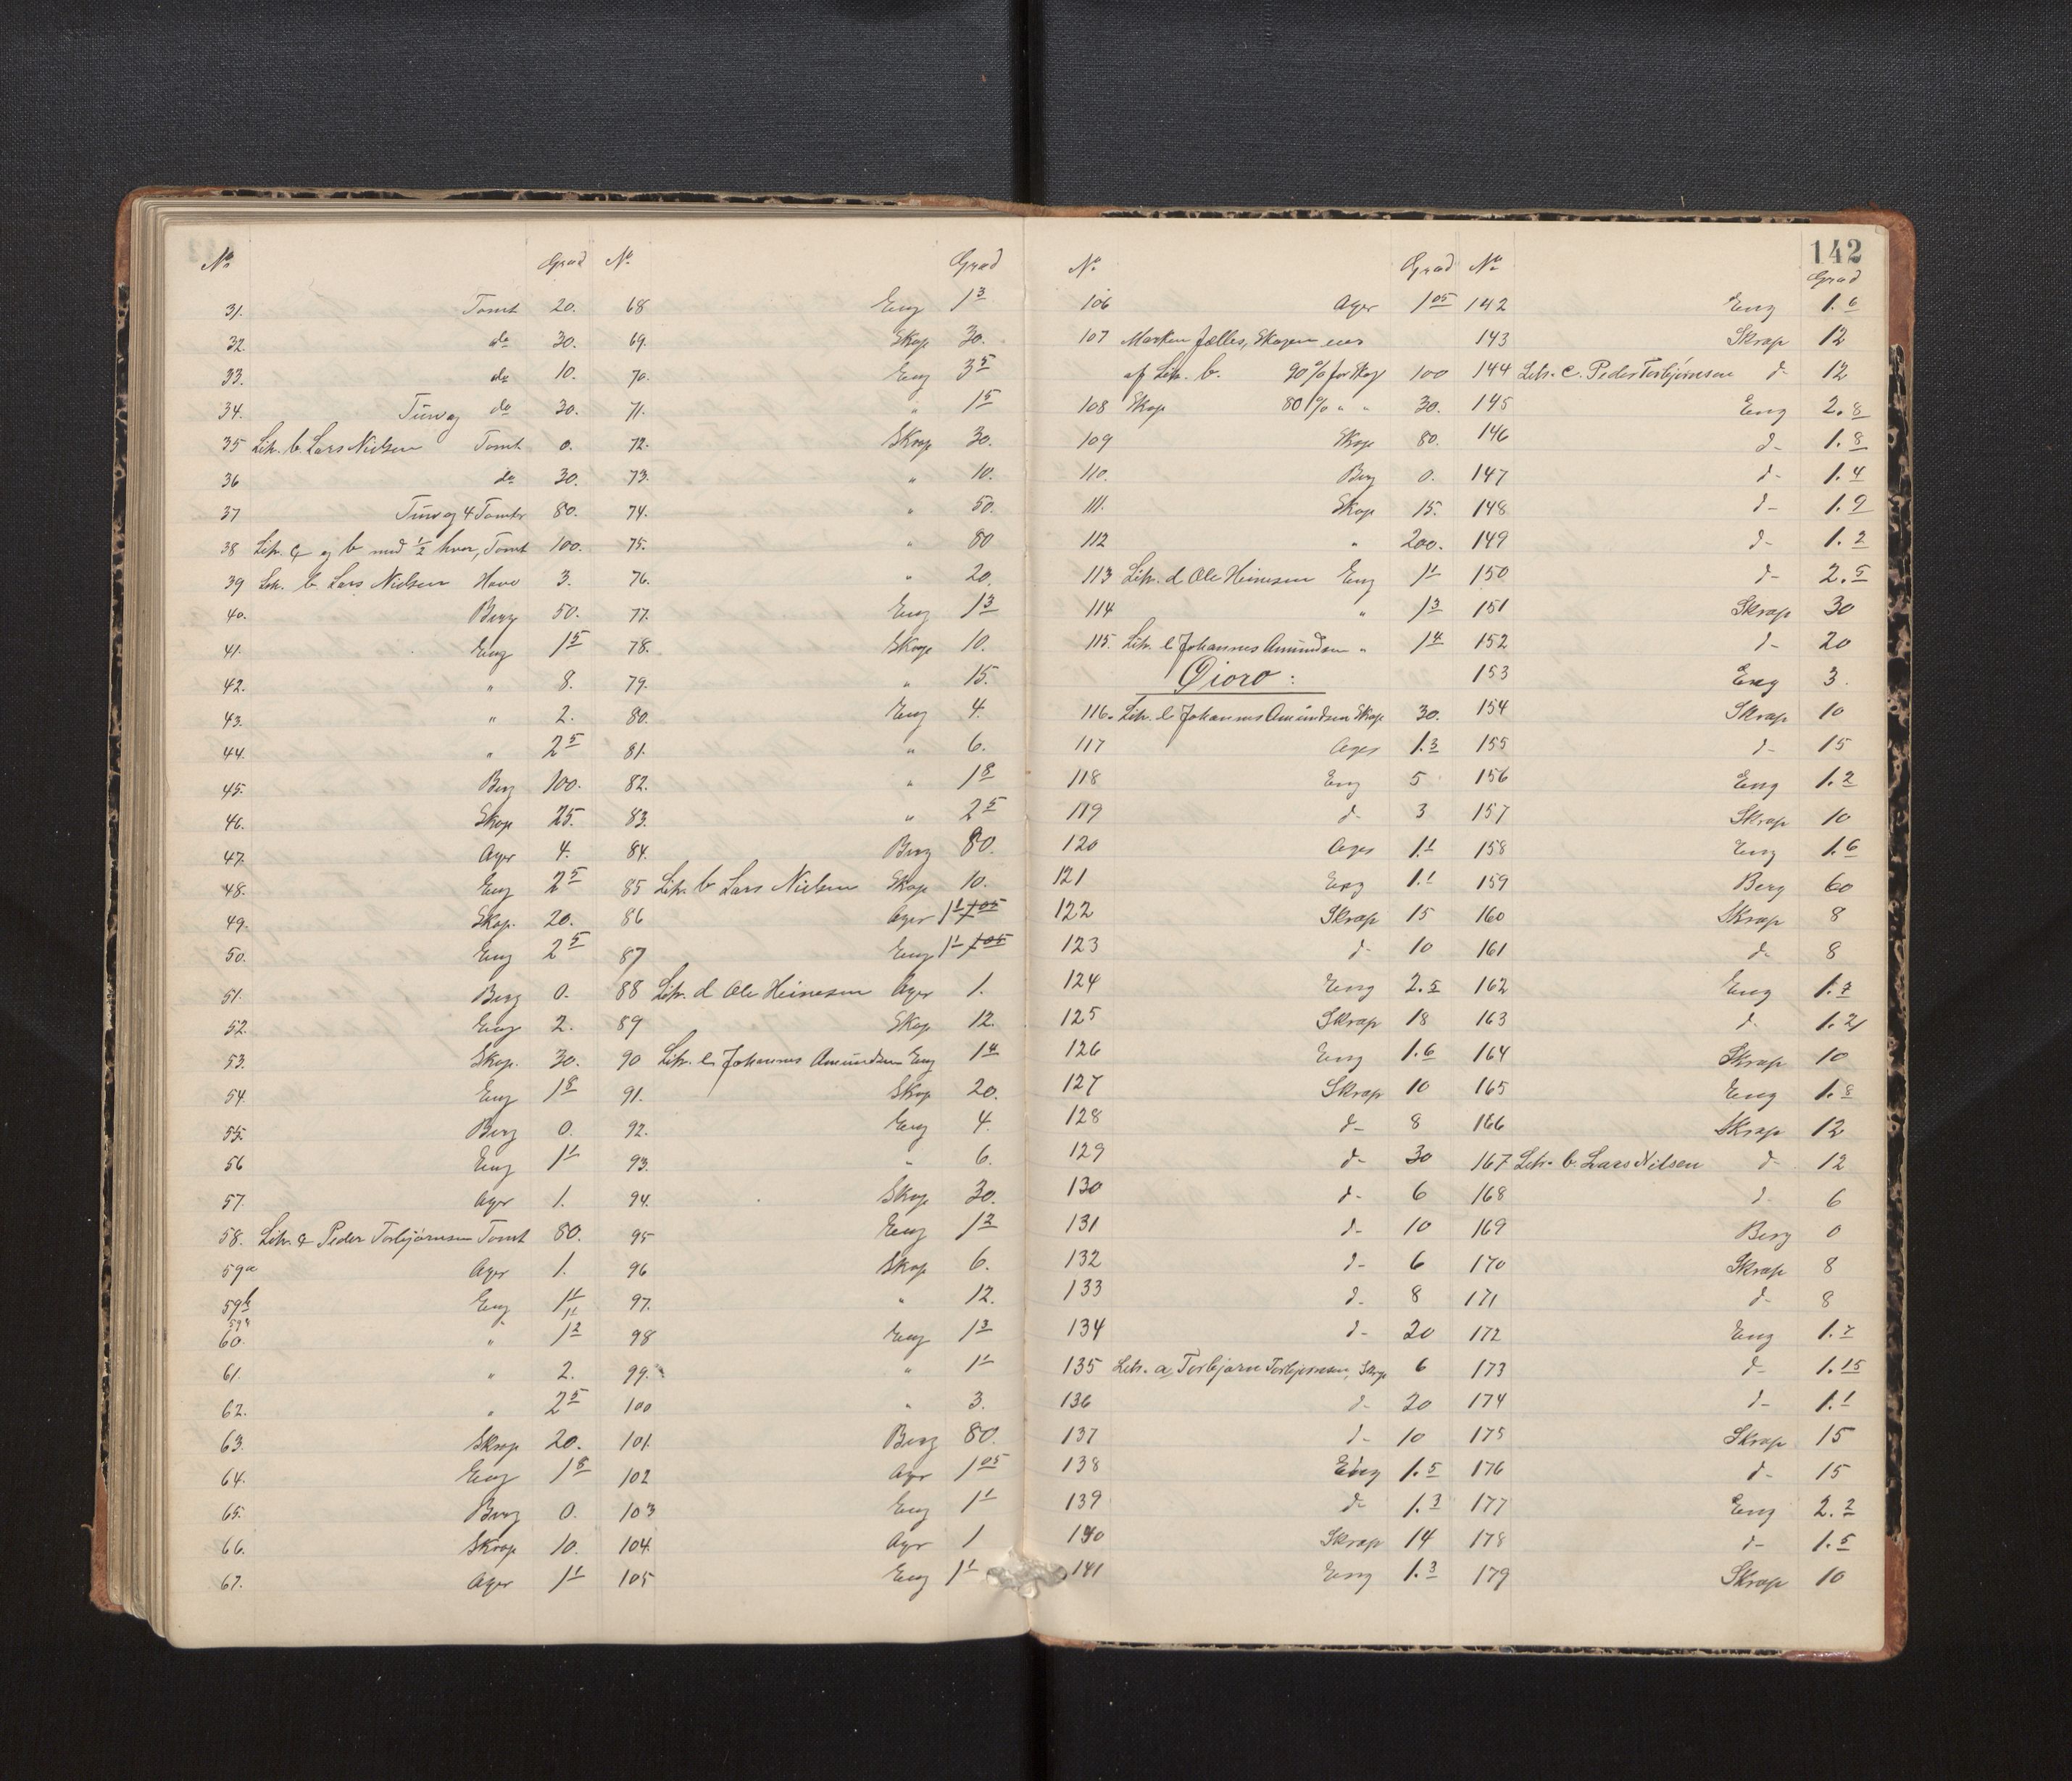 142
No Grad
31. Tomt 20.
32. do 30.
33. do 10.
34. Tunog do 30.
35 Litr. b. Lars Nielsen Tomt 0.
36 do 30.
37 Tunog 4 Tomter 80.
38 Litr. c og b med 1/2 hver, Tomt 100.
39 Litr. b. Lars Nielsen Have 3.
40. Berg 50.
41. Eng 1 5
42. " 8.
43. " 2.
44. " 2 5
45. Berg 100.
46. Skog 25.
47. Ager 4.
48. Eng 2 5
49. Skog. 20.
50. Eng 2 5
51. Berg 0.
52. Eng 2.
53. Skog. 30.
54. Eng 1 8
55. Berg 0.
56 Eng 1 1
57. Ager 1.
58. Litr. c Peder Torbjørnsen Tomt 80.
59a Ager 1.
59b Eng 1 1
60. " 1 2
61. " 2.
62. " 2 5
63. Skrap 20.
64. Eng 1 8
65. Berg 0.
66. Skrap 10.
67. Ager 1 1
No Grad
68 Eng 1 3
69. Skog 30.
70. Eng 3 5
71. " 1 5
72. Skrap 30.
73. " 10.
74. " 50.
75. " 80
76. " 20.
77. Eng 1 3
78. Skrap 10.
79. " 15.
80. Eng 4.
81. " 6.
82. " 1 8
83. " 2 5
84. Berg 80.
85 Litr. b Lars Nielsen Skog 10.
86 Ager 1 1 1 05
87 Eng 1 1 1 05
88 Litr. d Ole Heinesen Ager 1.
89 Skog 12.
90 Litr. e Johannes Amundsen Eng 1 4
91. Skog 20.
92. Eng 4.
93. " 6.
94. Skog 30.
95 Eng 1 2
96 Skog 6.
97. " 12.
98 Eng 1 3
99. " 1 1
100 " 3.
101. Berg 80.
102 Ager 1 05
103 Eng 1 1
104. Ager 1
105 Eng 1 1
No Grad
106 Ager 1 05
107 Marken fælles, Skogen eies
af Litr. b. 90% for Skog 100
108 Skog 80% " " 30.
109 Skog 80.
110. Berg 0.
111. Skog 15.
112 " 200.
113 Litr. d Ole Heinesen Eng 1 1
114 " 1 3
115. Litr. e Johannes Amundsen " 1 4
Øioro:
116. Litr. e Johannes Amundsen Skog 30.
117 Ager 1.3
118 Eng 5
119 d- 3
120 Ager 1.1
121 Eng 1.1
122 Skrap 15
123 d- 10
124 Eng 2.5
125 Skrap 18
126 Eng 1.6
127 Skrap 10
128 d- 8
129 d- 30
130 d- 6
131 d- 10
132 d- 6
133 d- 8
134 d- 20
135 Litr. a, Torbjørn Torbjørnsen, Skrap 6
136 d- 20
137 d- 10
138 Eng 1.5
139 d- 1.3
140 Skrap 14
141 Eng 1.3
No Grad
142 Eng 1.6
143 Skrap 12
144 Litr. c. Peder Torbjørnsen d- 12
145 Eng 2.8
146 d- 1.8
147 d- 1.4
148 d- 1.9
149 d- 1.2
150 d- 2.5
151 Skrap 30
152 d- 20
153 Eng 3.
154 Skrap 10
155 d- 15
156 Eng 1.2
157 Skrap 10
158 Eng 1.6
159 Berg 60
160 Skrap 8
161 d- 8
162 Eng 1.7
163 d- 1.2
164 Skrap 10
165 Eng 1.8
166 Skrap 12
167 Litr. b. Lars Nilsen d- 12
168 d- 6
169 Berg 0
170 Skrap 8
171 d- 8
172 Eng 1.7
173 d- 1.15
174 d- 1.1
175 Skrap 15
176 d- 15
177 Eng 2.2
178 d- 1.5
179 Skrap 10